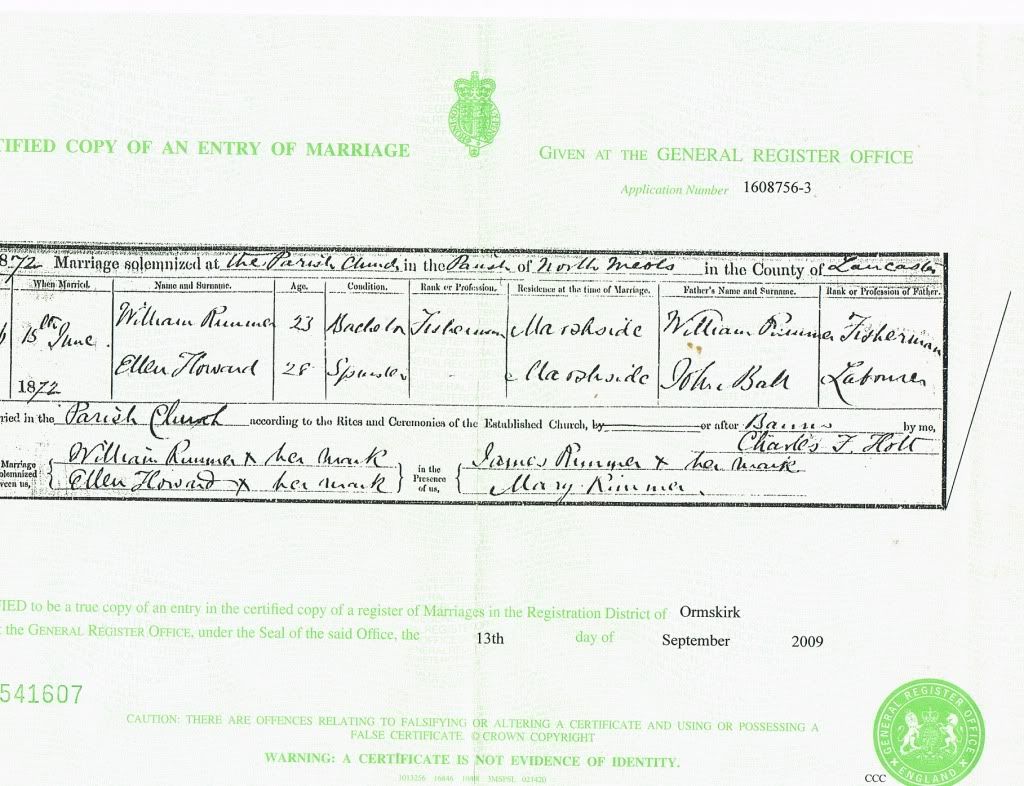 TIFIED COPY OF AN ENTRY OF MARRIAGE
GIVEN AT THE GENERAL REGISTER OFFICE
Application Number 1608756-3
872 Marriage solemnized at the Parish Church in the Parish of North Meols in the County of Lancaster
When Married. Name and Surname. Age. Condition. Rank or Profession. Residence at the time of Marriage. Father's Name and Surname. Rank or Profession of Father.
15th June William Rimmer 23 Bachelor Fisherman Marshside William Rimmer Fisherman
1872 Ellen Howard 28 Spinster - Marshside John Ball Labourer
ried in the Parish Church according to the Rites and Ceremonies of the Established Church, by or after Banns by me,
Charles F. Holt
Marriage solemnized ween us, William Rimmer x her mark in the Presence of us, James Rimmer x her mark
Ellen Howard x her mark Mary Rimmer.
FIED to be a true copy of an entry in the certified copy of a register of Marriages in the Registration District of Ormskirk
t the GENERAL REGISTER OFFICE, under the Seal of the said Office, the 13th day of September 2009
541607
CAUTION: THERE ARE OFFENCES RELATING TO FALSIFYING OR ALTERING A CERTIFICATE AND USING OR POSSESSING A
FALSE CERTIFICATE. © CROWN COPYRIGHT
WARNING: A CERTIFICATE IS NOT EVIDENCE OF IDENTITY.
3MSPSL 021420
CCC
GENERAL REGISTER OFFICE
ENGLAND